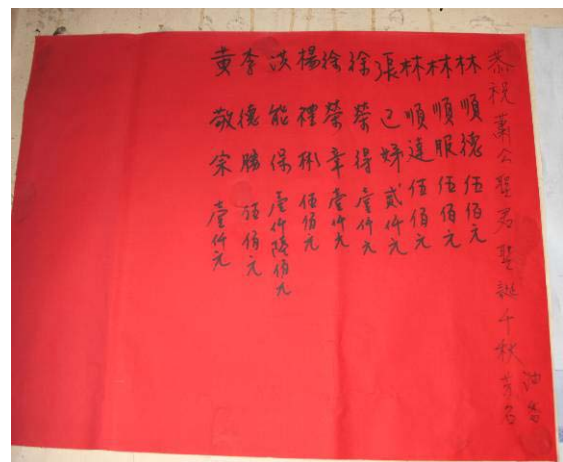 恭祝蕭公聖君聖誕千秋芳名
油香
林順德伍佰元
林順服伍佰元
林順達伍佰元
張己娣貳仟元
徐榮得壹仟元
徐榮章壹仟元
楊禮彬伍佰元
洪能保壹仟陸佰元
李德勝伍佰元
黃敬宗壹仟元